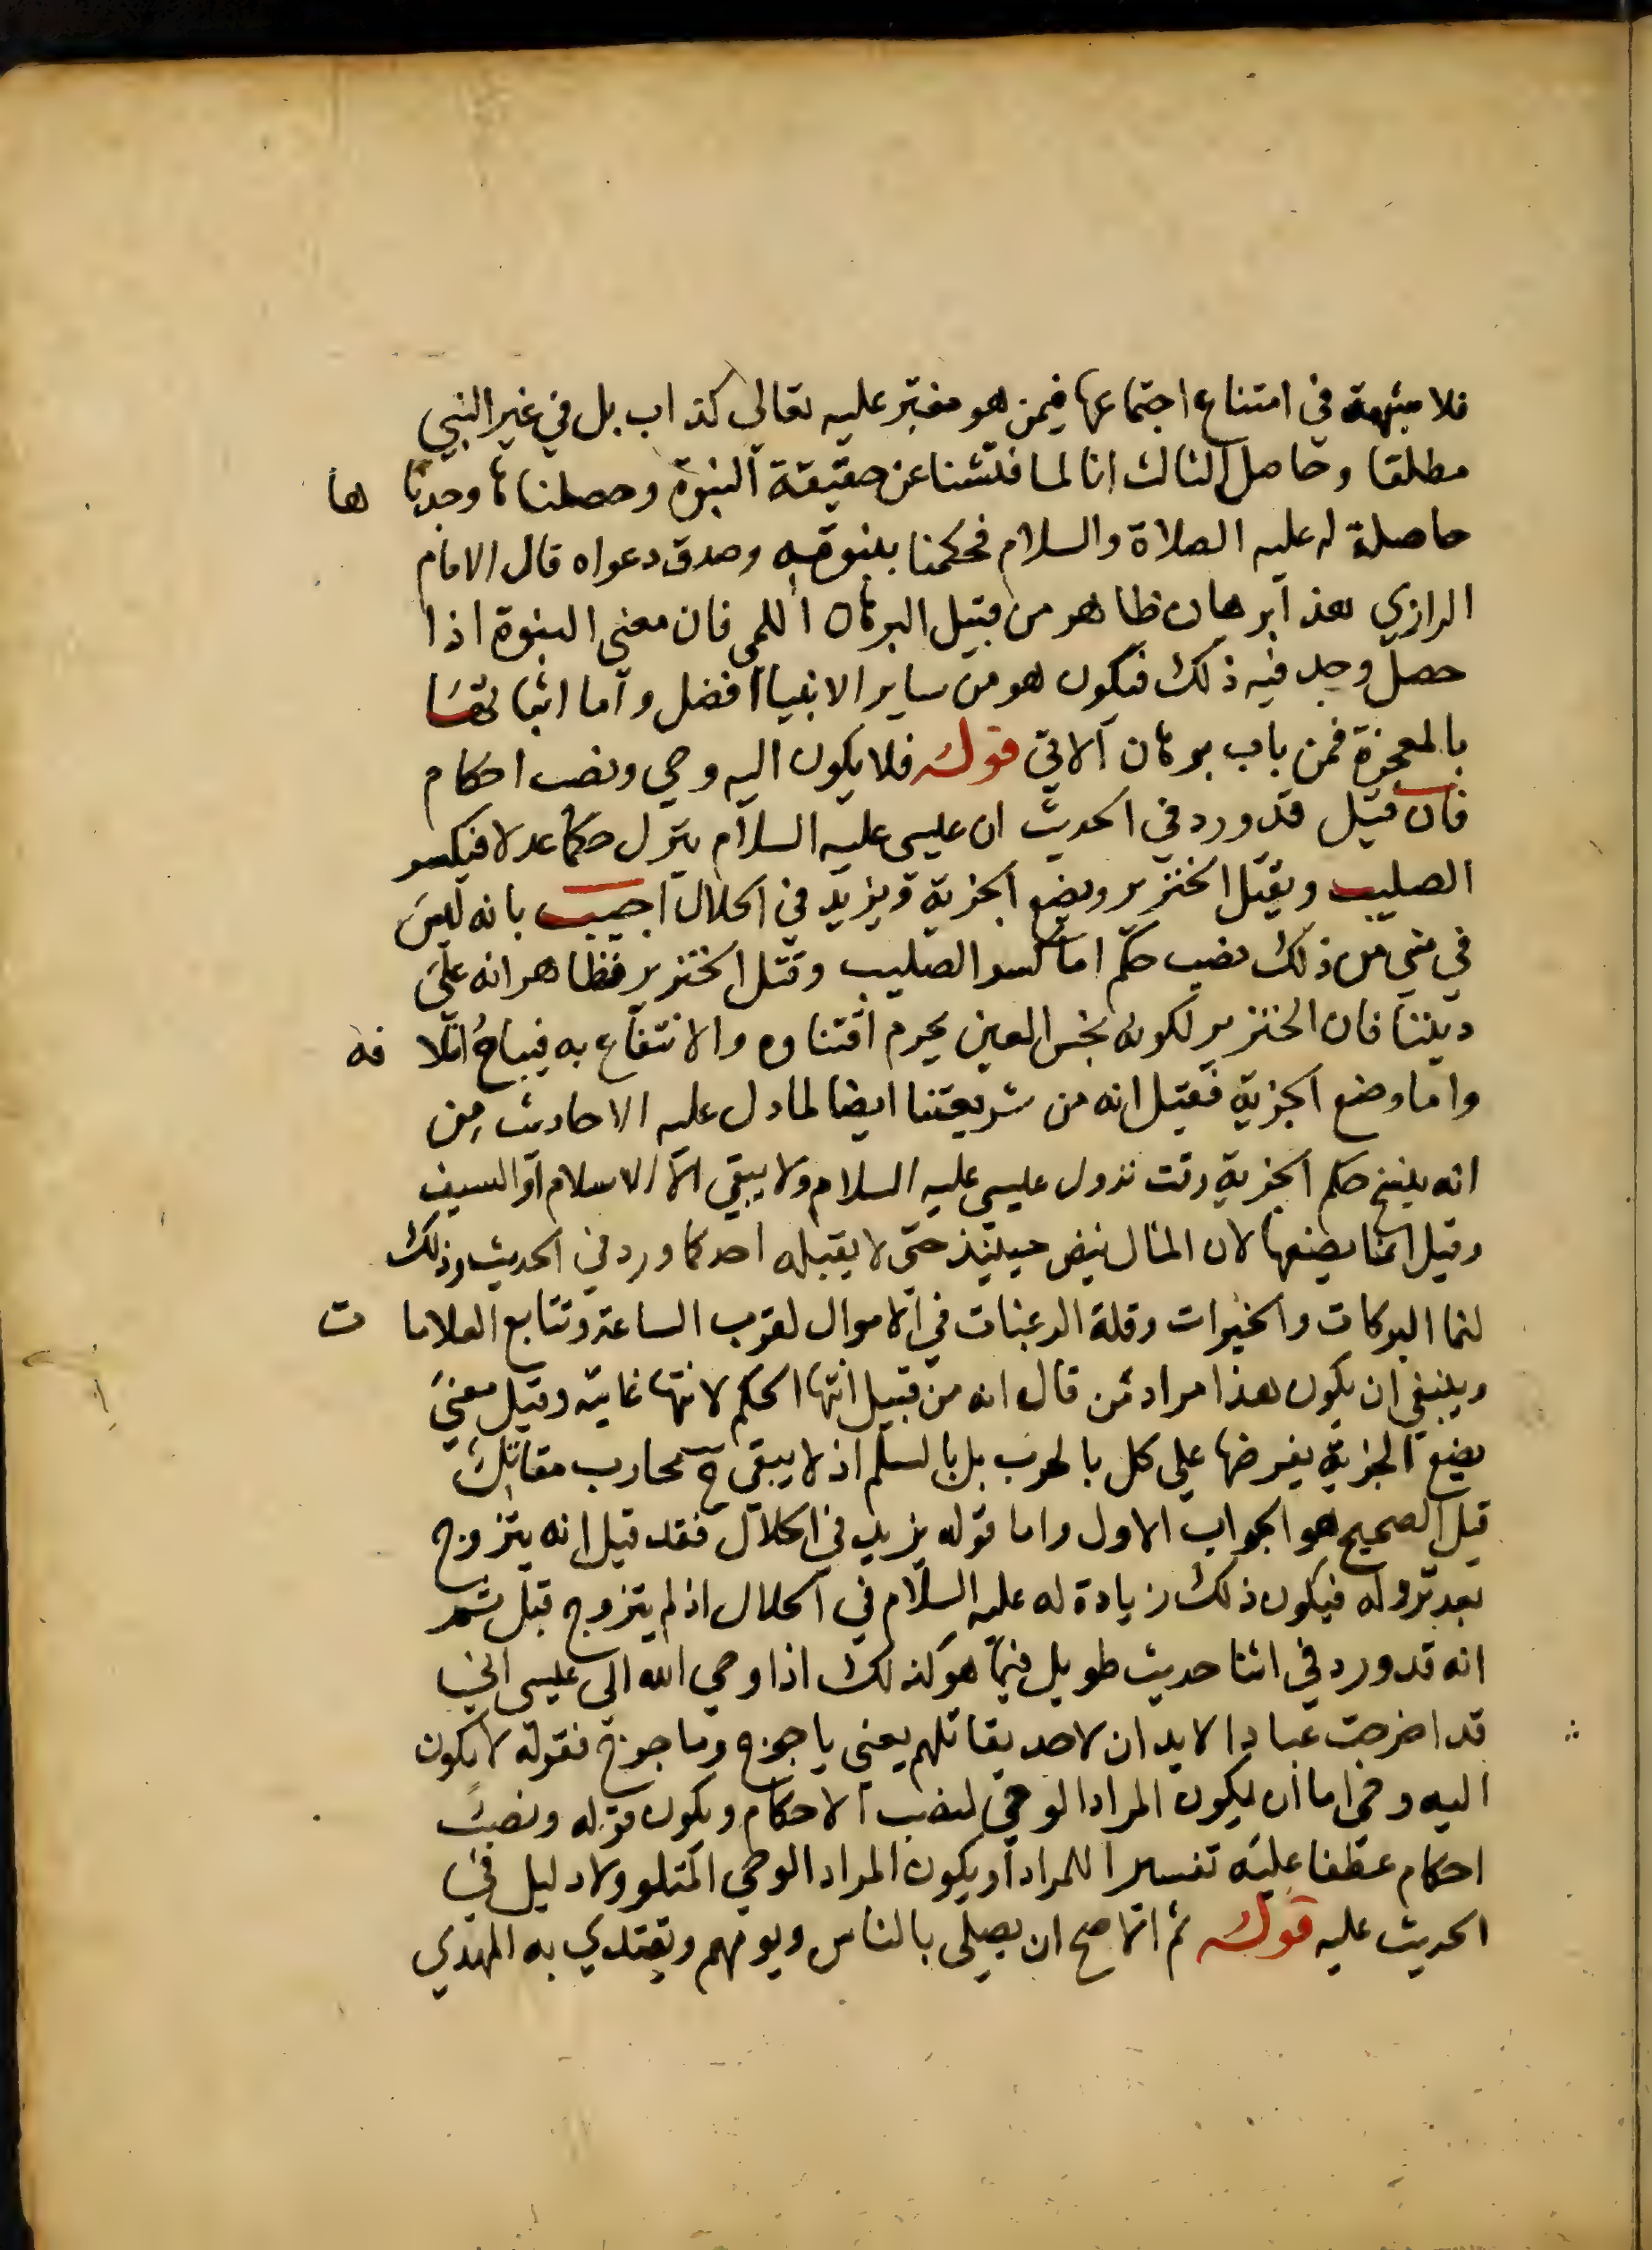 فلا شبهة في امتناع اجتماعها فيمن هو مفتر عليه تعالى كذاب بل في غير النبي
مطلقا وحاصل الثالث انا لما فتشنا عن حقيقة النبوة وحصلناها وجدناها
حاصلة له عليه الصلاة والسلام فحكمنا بنبوته وصدق دعواه قال الامام
الرازي هذا برهان ظاهر من قبيل البرهان اللمي فان معنى النبوة اذا
حصل وجد فيه ذلك فيكون هو من ساير الانبيا افضل واما اثباتها
بالمعجزة فمن باب برهان الاني قوله فلا يكون اليه وحي ونصب احكام
فان قيل قد ورد في الحديث ان عيسى عليه السلام ينزل حكما عدلا فيكسر
الصليب ويقتل الخنزير ويضع الجزية ويزيد في الحلال اجيب بانه ليس
في شي من ذلك نصب حكم اما كسر الصليب وقتل الخنزير فظاهر انه على
ديننا فان الخنزير لكونه نجس العين يحرم اقتناوه والانتفاع به فيباح اتلافه
واما وضع الجزية فقيل انه من شريعتنا ايضا لما دل عليه الاحاديث من
انه ينسخ حكم الجزية وقت نزول عيسى عليه السلام ولا يبقى الا الاسلام او السيف
وقيل انما يضعها لان المال يفيض حينيذ حتى لا يقبله احد كما ورد في الحديث وذلك
لنما البركات والخيرات وقلة الرغبات في الاموال لقرب الساعة وتتابع العلامات
وينبغي ان يكون هذا مراد من قال انه من قبيل انتها الحكم لانتها غايته وقيل معنى
يضع الجزية يفرضها على كل بالحرب بل بالسلم اذ لا يبقى ح محارب مقاتل
قيل الصحيح هو الجواب الاول واما قوله يزيد في الحلال فقد قيل انه يتزوج
بعد نزوله فيكون ذلك زيادة له عليه السلام في الحلال اذ لم يتزوج قبل ثم
انه قد ورد في اثنا حديث طويل فبينما هو كذلك اذ اوحى الله الى عيسى اني
قد اخرجت عبادا لا يدان لاحد بقتالهم يعني ياجوج وماجوج فقوله لا يكون
اليه وحي اما ان يكون المراد الوحي لنصب الاحكام ويكون قوله ونصب
احكام عطفا عليه تفسيرا للمراد او يكون المراد الوحي المتلو ولا دليل في
الحديث عليه قوله ثم الاصح ان يصلي بالناس ويومهم ويقتدي به المهدي